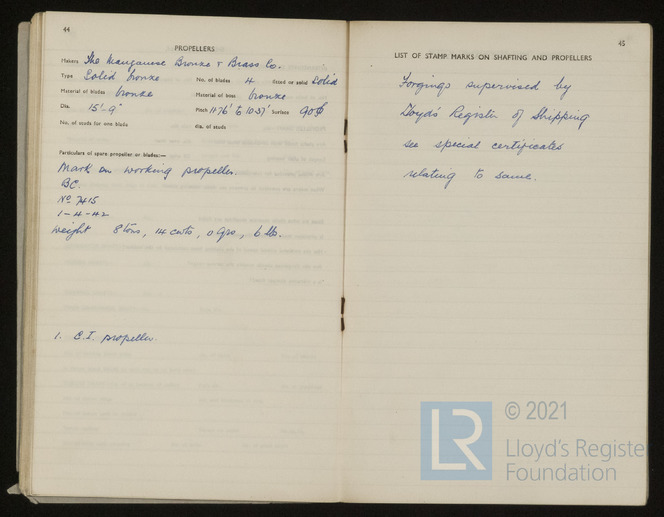 44
PROPELLERS
Makers The Manganese Bronze & Brass Co.
Type Solid bronze No. of blades 4 fitted or solid Solid
Material of blades bronze Material of boss bronze
Dia. 15'-9" Pitch 11.76' to 10.37' Surface 90
No. of studs for one blade dia. of studs
Particulars of spare propeller or blades:—
Mark on working propeller.
BC.
No 7415
1-4-42
Weight 8 tons, 14 cwts, 0 qrs, 6 lbs.
1. C.I. propeller.
45
LIST OF STAMP MARKS ON SHAFTING AND PROPELLERS
Forgings supervised by
Lloyd's Register of Shipping
see special certificates
relating to same.
LR
© 2021
Lloyd's Register
Foundation